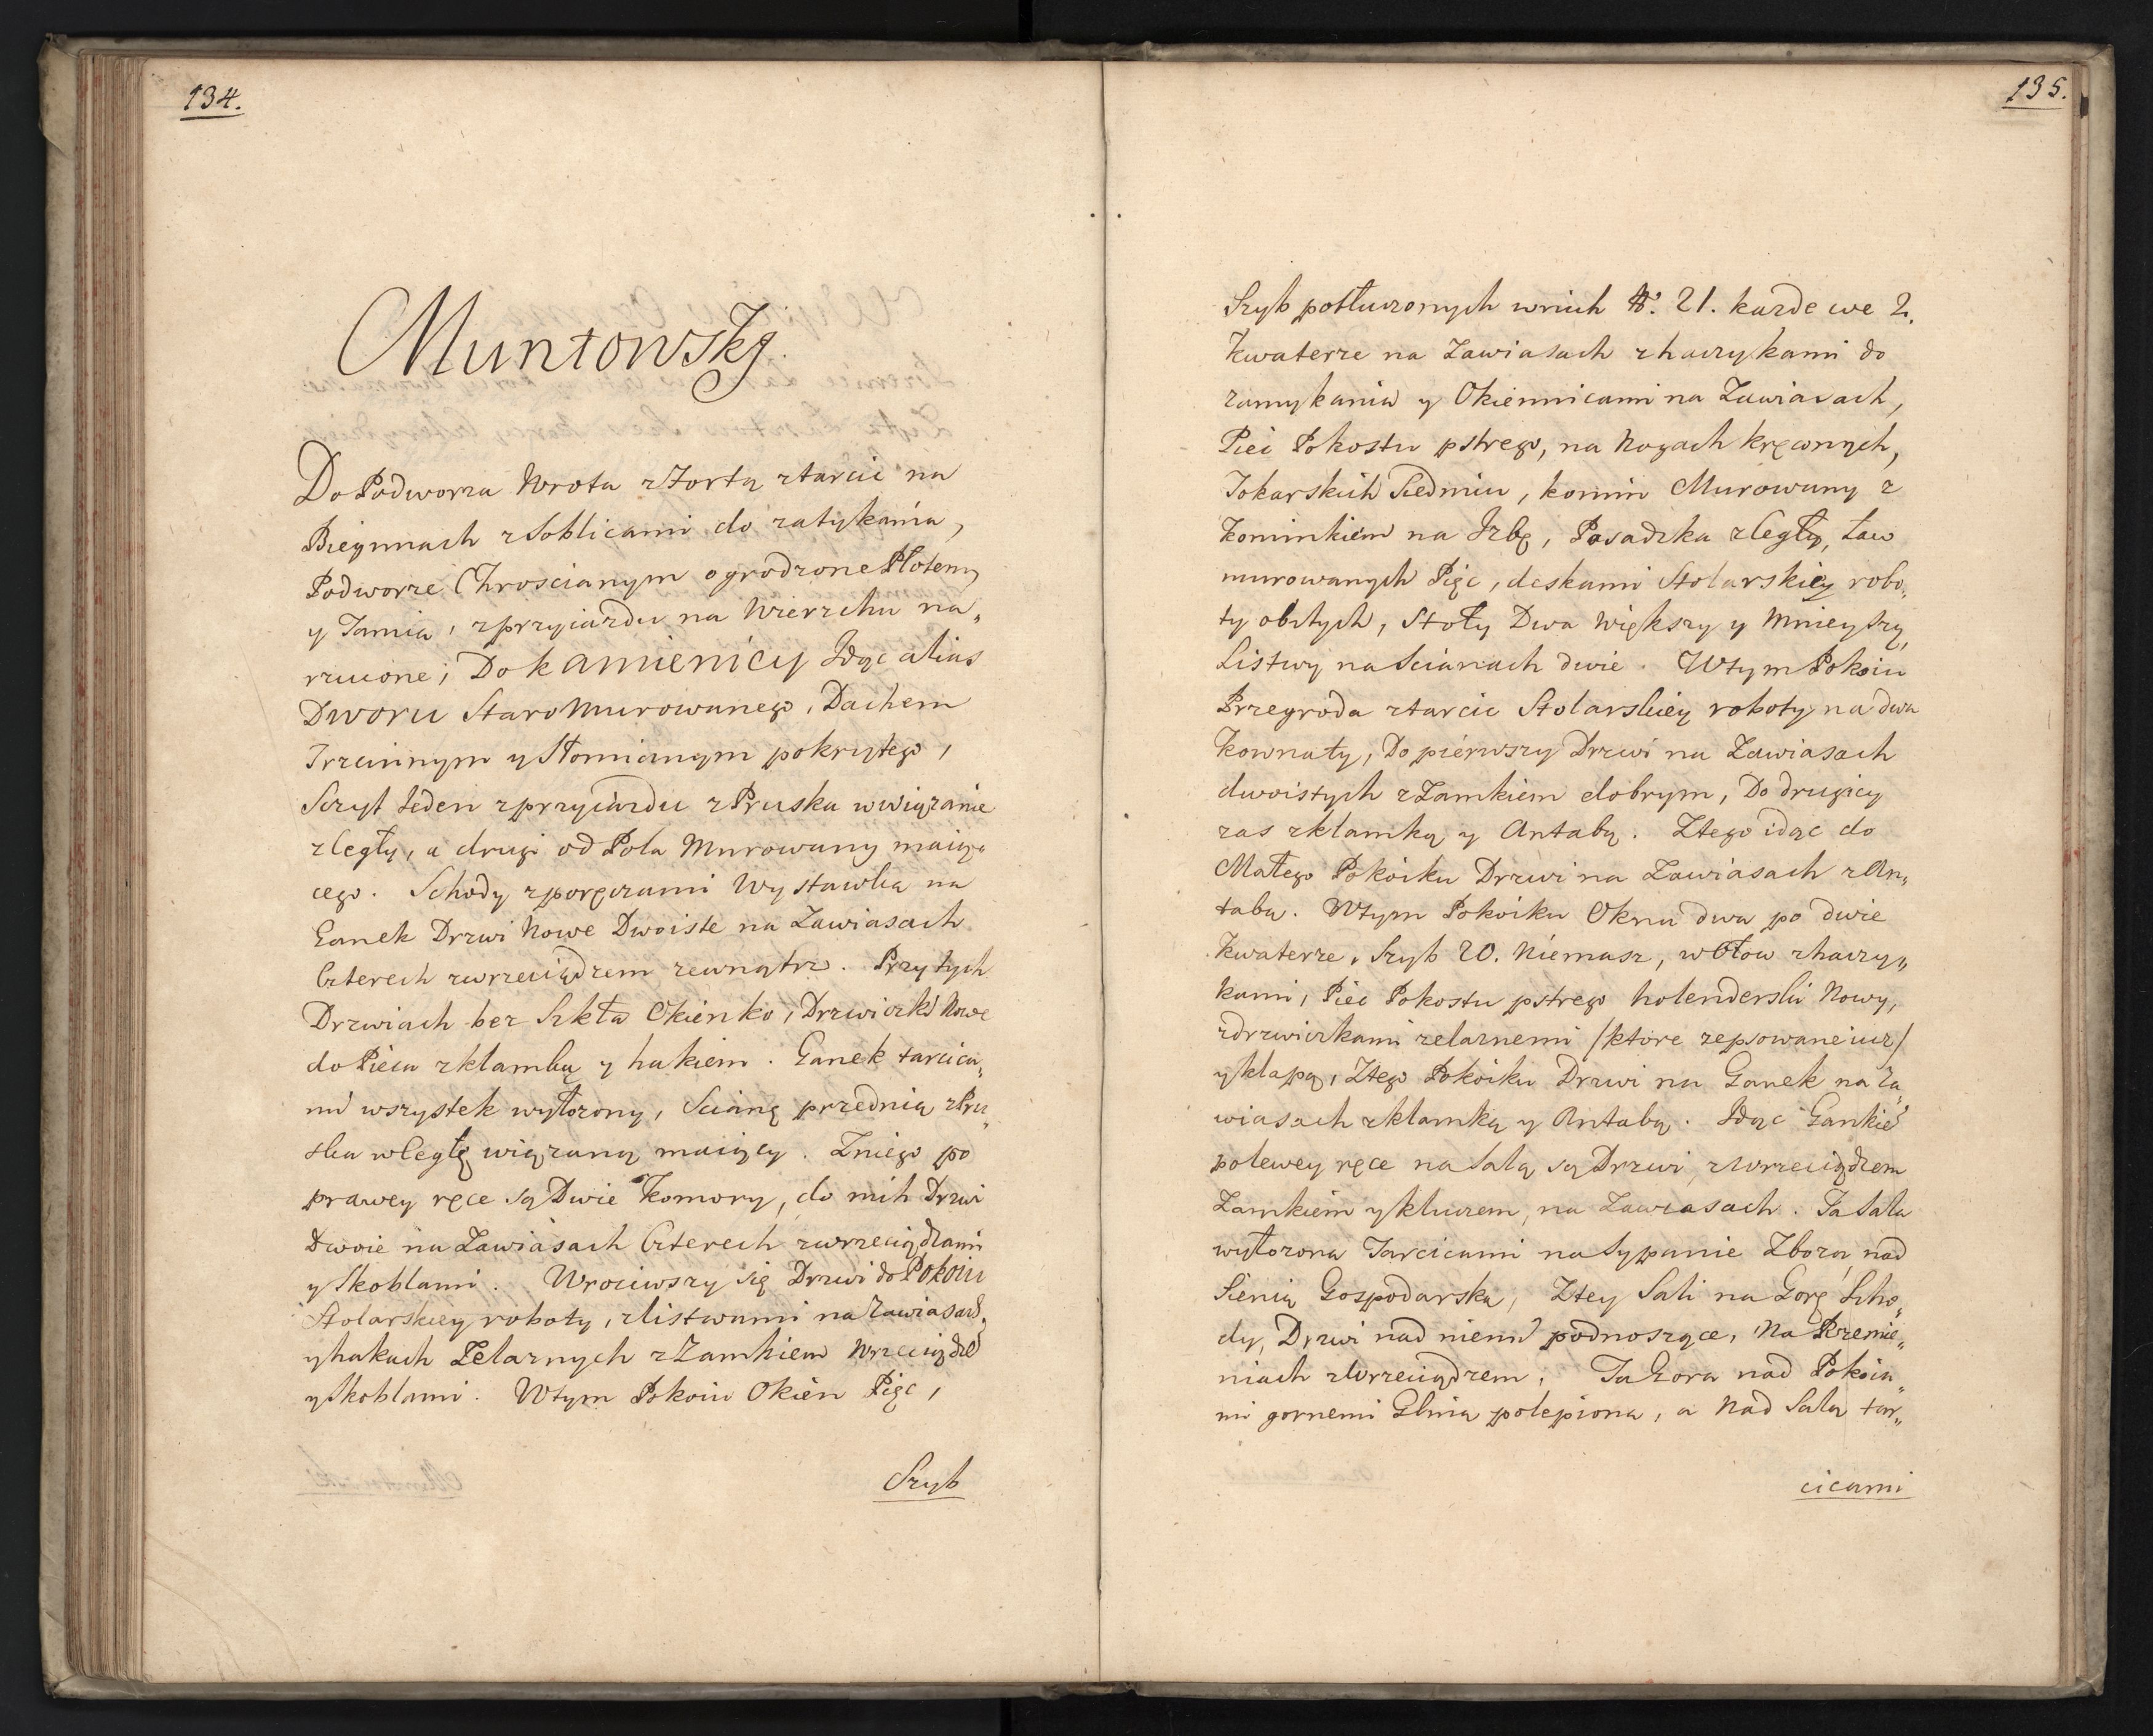 134.
Muntowskÿ.
Do Podworza Wrota z Fortą ztarcic na
Biegunach z Soblicami do zatykania,
Podworze Chroscianym ogrodzone Płotem,
y Tamia, zprzyiazdu na Wierzchu na„
rzucone; Do kamienicy Idąc alias
Dworu Staro Murowanego, Dachem
Trzcinnym y Słomianym pokrytego,
Szczyt Ieden zprzyiazdu z Pruska w wiązanie
z Cegły, a drugi od Pola Murowany maiące„
cego. Schody zporęczami Wystawką na
Ganek Drzwi Nowe Dwoiste na Zawiasach
Czterech zwrzeciądzem zewnątrz. Przy tych
Drzwiach bez Szkła Okienko, Drzwiczki Nowe
do Pieca zklamką y hakiem. Ganek tarcica„
mi wszystek wyłozony, Scianę przednią z Pru„
ska w Cegłę wiązaną maiący. Z niego po
prawey ręce są Dwie Komory, do nich Drzwi
Dwoie na Zawiasach Czterech zwrzeciądzami
y Skoblami. Wrociwszy się Drzwi do Pokoiu
Stolarskiey roboty, z listwami na Zawiasach,
y hakach Zelaznych z Zamkiem Wrzeciądzem
y Skoblami. W tym Pokoiu Okien Pięc,
Szyb
135.
Szyb potłuczonych wnich No. 21. kazde we 2.
Kwaterze na Zawiasach z haczykami do
zamykania y Okiennicami na Zawiasach,
Piec Pokostu pstrego, na Nogach kręconych,
Tokarskich Siedmiu, komin Murowany z
Kominkiem na Izbę, Posadzka z Cegły, Ław
murowanych Pięc, deskami Stolarskiey robo„
ty obitych, Stoły Dwa Większy y Mnieyszy,
Listwy na Scianach dwie. W tym Pokoiu
Przegroda ztarcic Stolarskiey roboty na dwa
Kownaty, Do pierwszy Drzwi na Zawiasach
dwoistych z Zamkiem dobrym, Do drugiey
zas zklamką y Antabą. Ztego idąc do
Małego Pokoiku Drzwi na Zawiasach z An„
tabą. W tym Pokoiku Okna dwa po dwie
Kwaterze, Szyb 20. Niemasz, w Ołow z haczy„
kami, Piec Pokostu pstrego holenderski Nowy,
zdrzwiczkami zelaznemi /ktore zepsowane iuz/
y klapą, Ztego Pokoiku Drzwi na Ganek na Za„
wiasach zklamką y Antabą. Idąc Gankiē
po lewey ręce na Salą są Drzwi, z Wrzeciądzem
Zamkiem y kluczem, na Zawiasach. Ta Sala
wyłozona Tarcicami na Sypanie Zboza, nad
Sienią Gospodarską, Ztey Sali na Gorę Scho„
dy, Drzwi nad niemi podnoszące, Na Krzemie„
niach z Wrzeciądzem, Ta Gora nad Pokoia„
mi gornemi Gliną polepiona, a Nad Salą tar„
cicami